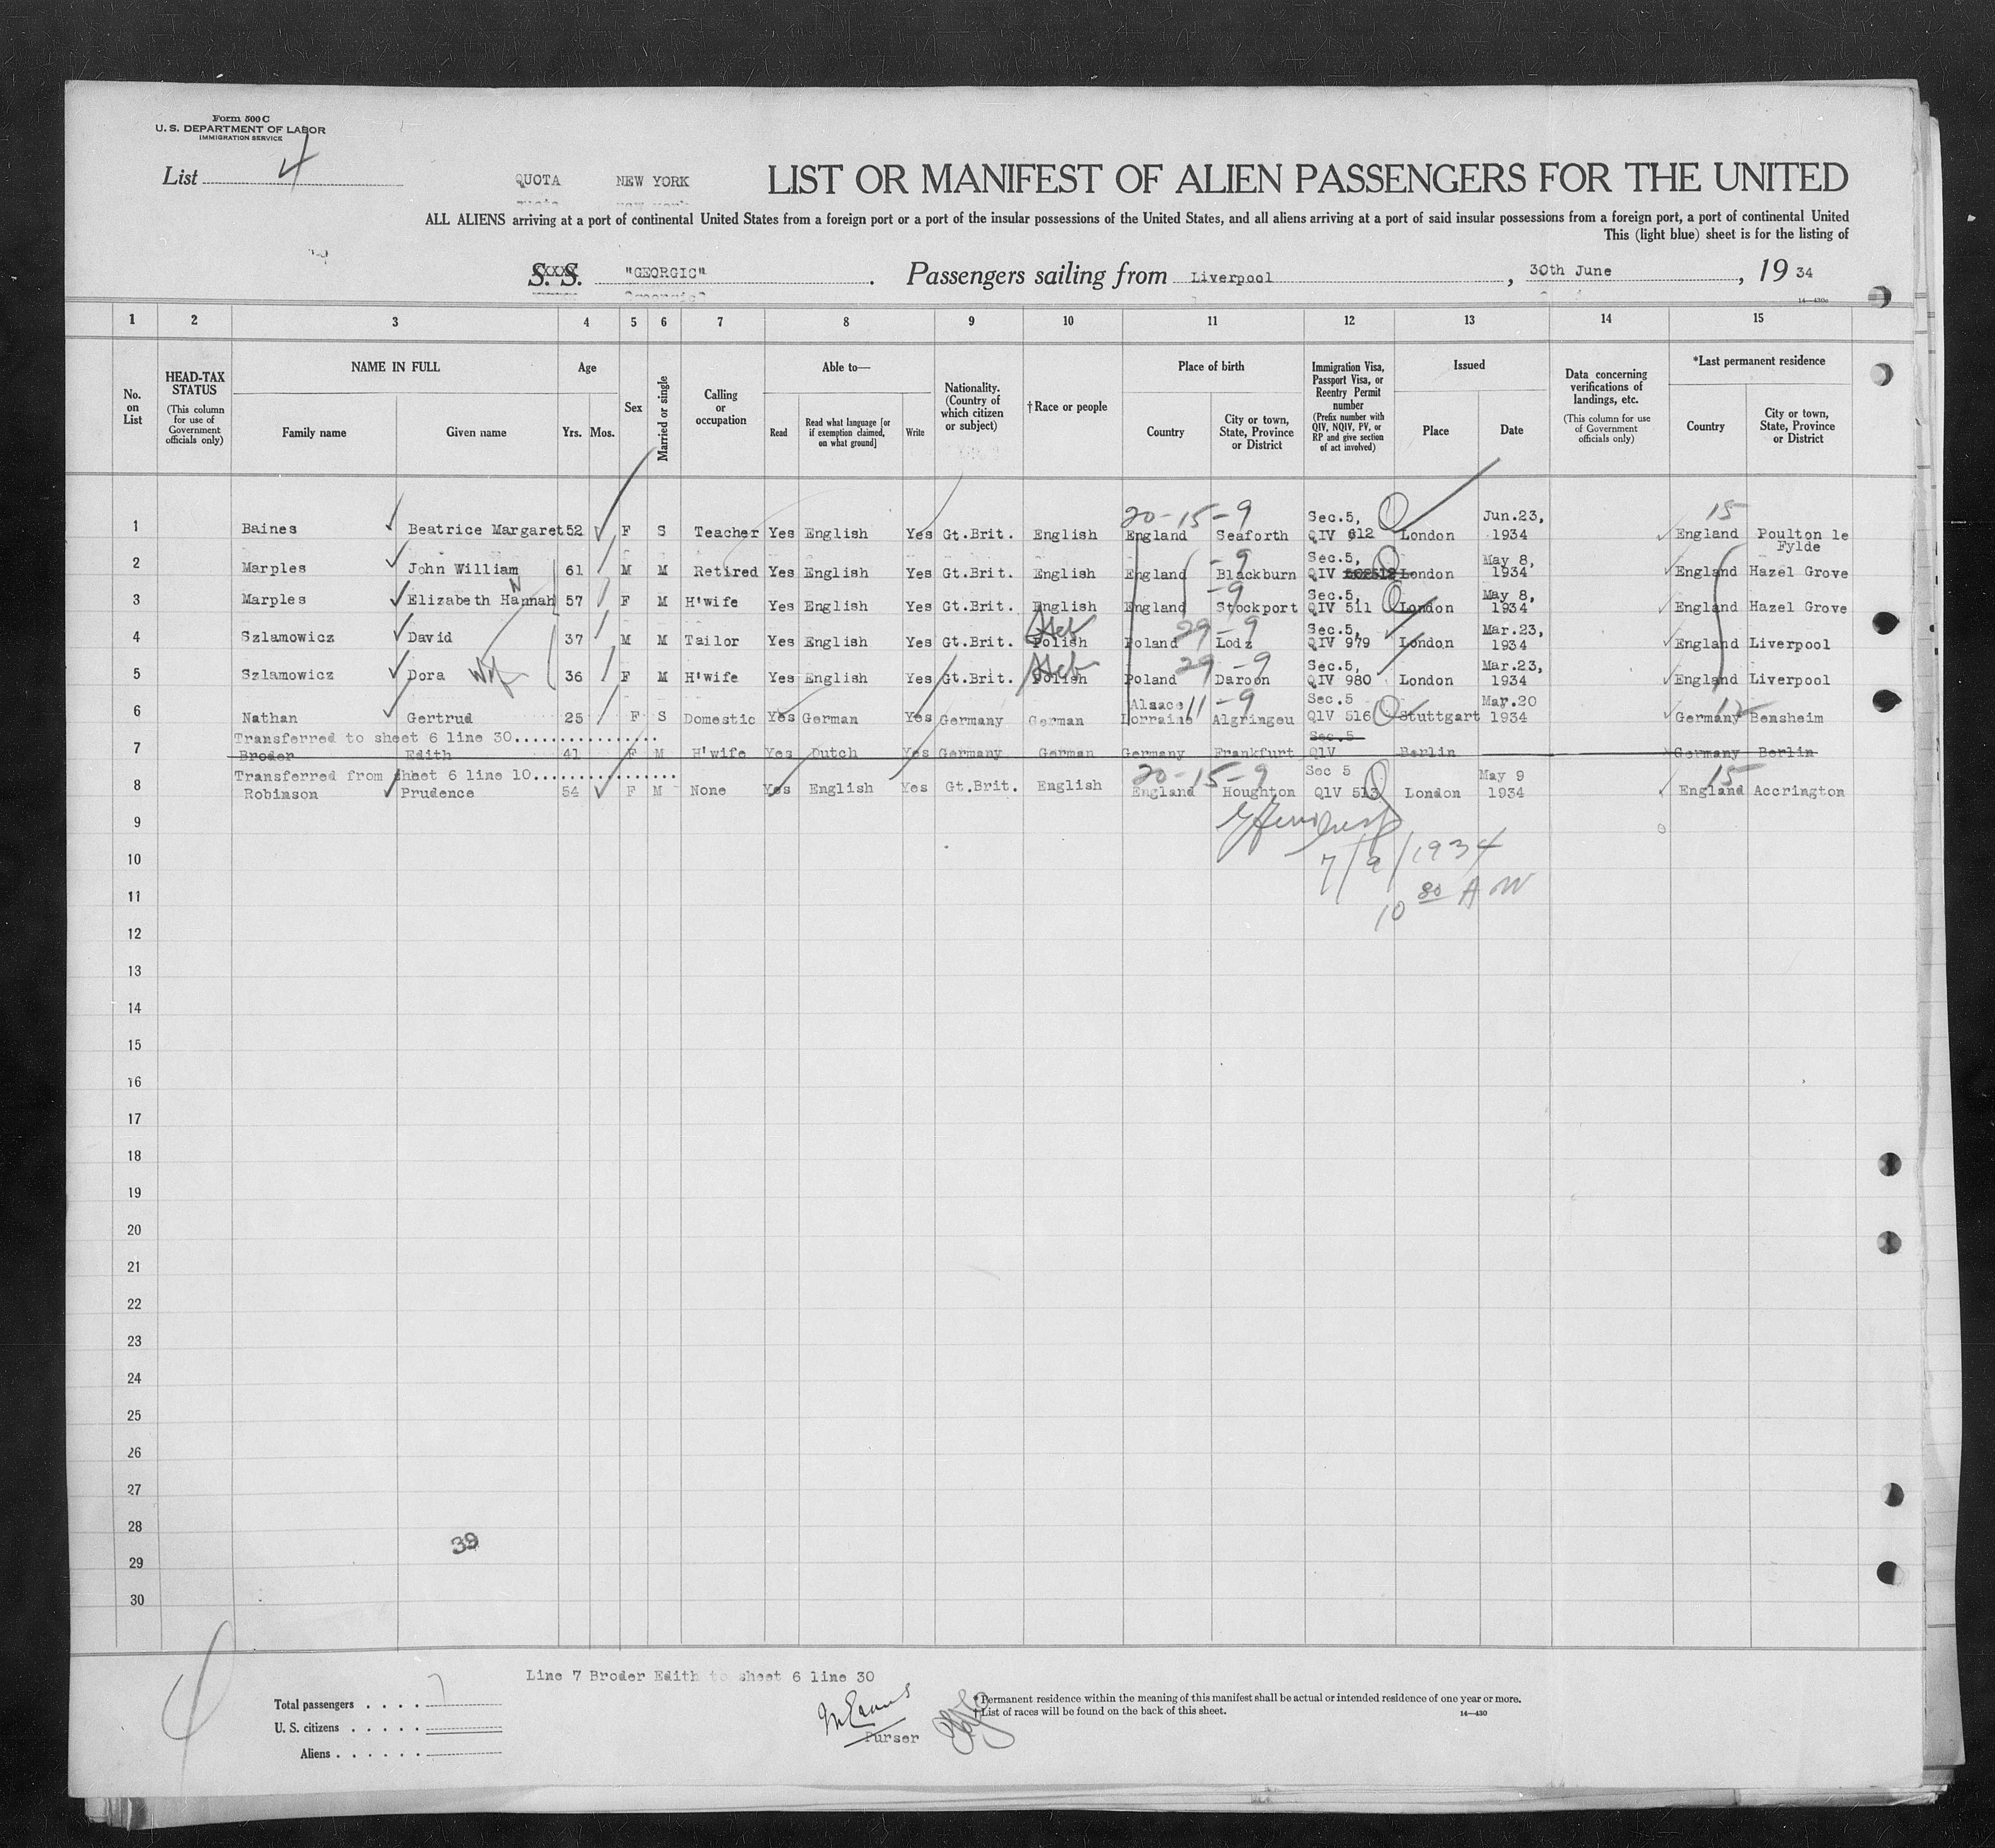 Form 500 C
U. S. DEPARTMENT OF LABOR
IMMIGRATION SERVICE
List 4
QUOTA NEW YORK LIST OR MANIFEST OF ALIEN PASSENGERS FOR THE UNITED
ALL ALIENS arriving at a port of continental United States from a foreign port or a port of the insular possessions of the United States, and all aliens arriving at a port of said insular possessions from a foreign port, a port of continental United
This (light blue) sheet is for the listing of
S. S. "GEORGIC" . Passengers sailing from Liverpool , 30th June , 19 34
14—430a
1 2 3 4 5 6 7 8 9 10 11 12 13 14 15
No. on List
HEAD-TAX STATUS (This column for use of Government officials only)
NAME IN FULL Family name Given name
Age Yrs. Mos.
Sex
Married or single
Calling or occupation
Able to— Read Read what language [or if exemption claimed, on what ground] Write
Nationality. (Country of which citizen or subject)
†Race or people
Place of birth Country City or town, State, Province or District
Immigration Visa, Passport Visa, or Reentry Permit number (Prefix number with QIV, NQIV, PV, or RP and give section of act involved)
Issued Place Date
Data concerning verifications of landings, etc. (This column for use of Government officials only)
*Last permanent residence Country City or town, State, Province or District
20-15-9 Sec.5, Jun.23, 15
1 Baines Beatrice Margaret 52 F S Teacher Yes English Yes Gt.Brit. English England Seaforth QIV 612 London 1934 England Poulton le Fylde
-9 Sec.5, May 8,
2 Marples John William 61 M M Retired Yes English Yes Gt.Brit. English England Blackburn QIV 512 London 1934 England Hazel Grove
-9 Sec.5, May 8,
3 Marples Elizabeth Hannah 57 F M H'wife Yes English Yes Gt.Brit. English England Stockport QIV 511 London 1934 England Hazel Grove
Heb 29-9 Sec.5, Mar.23,
4 Szlamowicz David 37 M M Tailor Yes English Yes Gt.Brit. Polish Poland Lodz QIV 979 London 1934 England Liverpool
Heb 29-9 Sec.5, Mar.23,
5 Szlamowicz Dora Wife 36 F M H'wife Yes English Yes Gt.Brit. Polish Poland Daroon QIV 980 London 1934 England Liverpool
Alsace 11-9 Sec.5 Mar.20 12
6 Nathan Gertrud 25 F S Domestic Yes German Yes Germany German Lorraine Algringeu Q1V 516 Stuttgart 1934 Germany Bensheim
Transferred to sheet 6 line 30................. Sec.5
7 Broder Edith 41 F M H'wife Yes Dutch Yes Germany German Germany Frankfurt Q1V Berlin Germany Berlin
Transferred from sheet 6 line 10................. 20-15-9 Sec 5 May 9 15
8 Robinson Prudence 54 F M None Yes English Yes Gt.Brit. English England Houghton Q1V 513 London 1934 England Accrington
9
10 7/9/1934
11 10 30 A M
12
13
14
15
16
17
18
19
20
21
22
23
24
25
26
27
28
39
29
30
Line 7 Broder Edith to sheet 6 line 30
Total passengers . . . . 7
U. S. citizens . . . . .
Aliens . . . . . .
Purser
* Permanent residence within the meaning of this manifest shall be actual or intended residence of one year or more.
† List of races will be found on the back of this sheet.
14—430